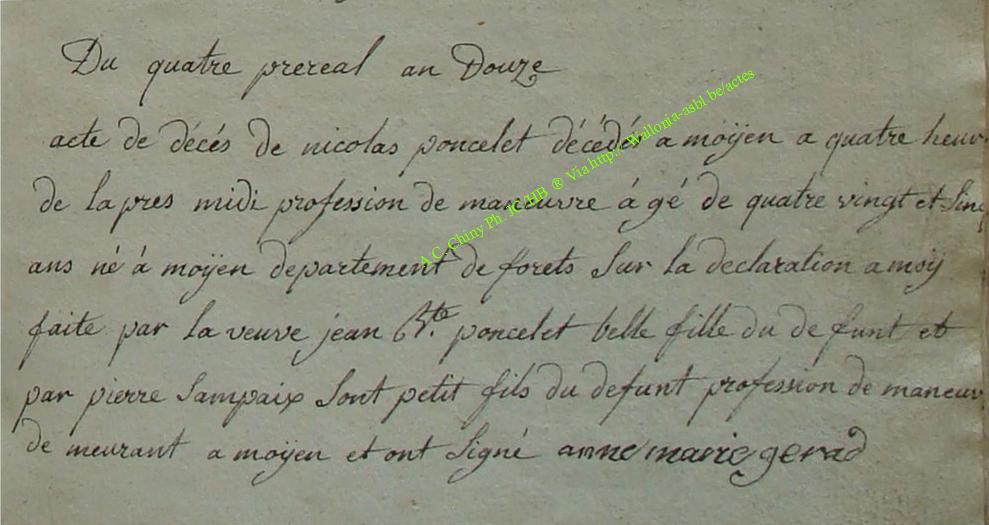 Du quatre prereal an Douze
acte de décés de nicolas poncelet décédés a moÿen a quatre heur
de lapres midi profession de maneuvre á gé de quatre vingt et Sinq
ans né á moÿen departement de forets Sur la declaration a moÿ
faite par la veuve jean Bte. poncelet belle fille du de funt et
par pierre Sampaix Sont petit fils du defunt profession de maneuv
de meurant a moÿen et ont Signé anne marie gerad
A.C. Chiny Ph. JC/HB ® Via http://Wallonia-asbl.be/actes